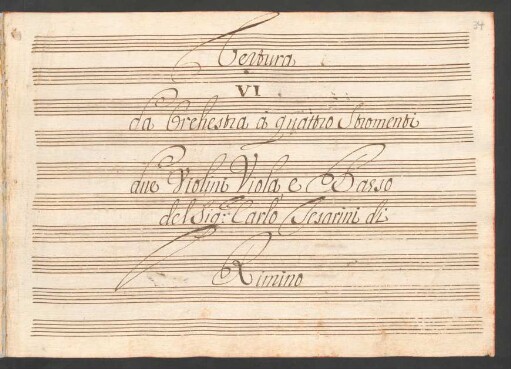 24
Overtura
VI
da Orchestra à quattro Stromenti
due Violini Viola e Basso
del Sig.r Carlo Tesarini di
Rimino